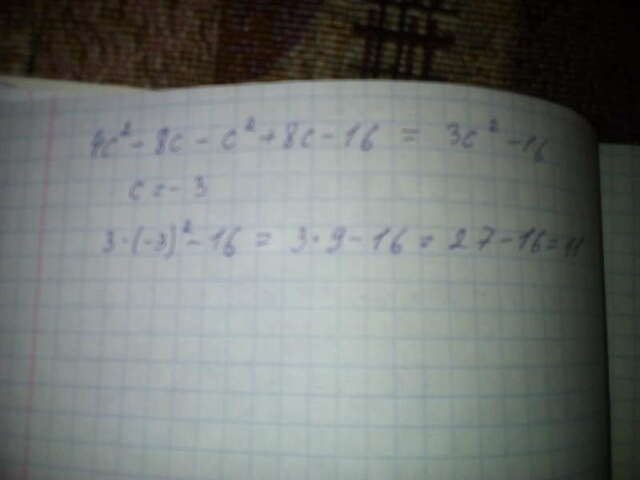 4c² - 8c - c² + 8c - 16 = 3c² - 16
c = - 3
3·(-3)² - 16 = 3·9 - 16 = 27 - 16 = 11